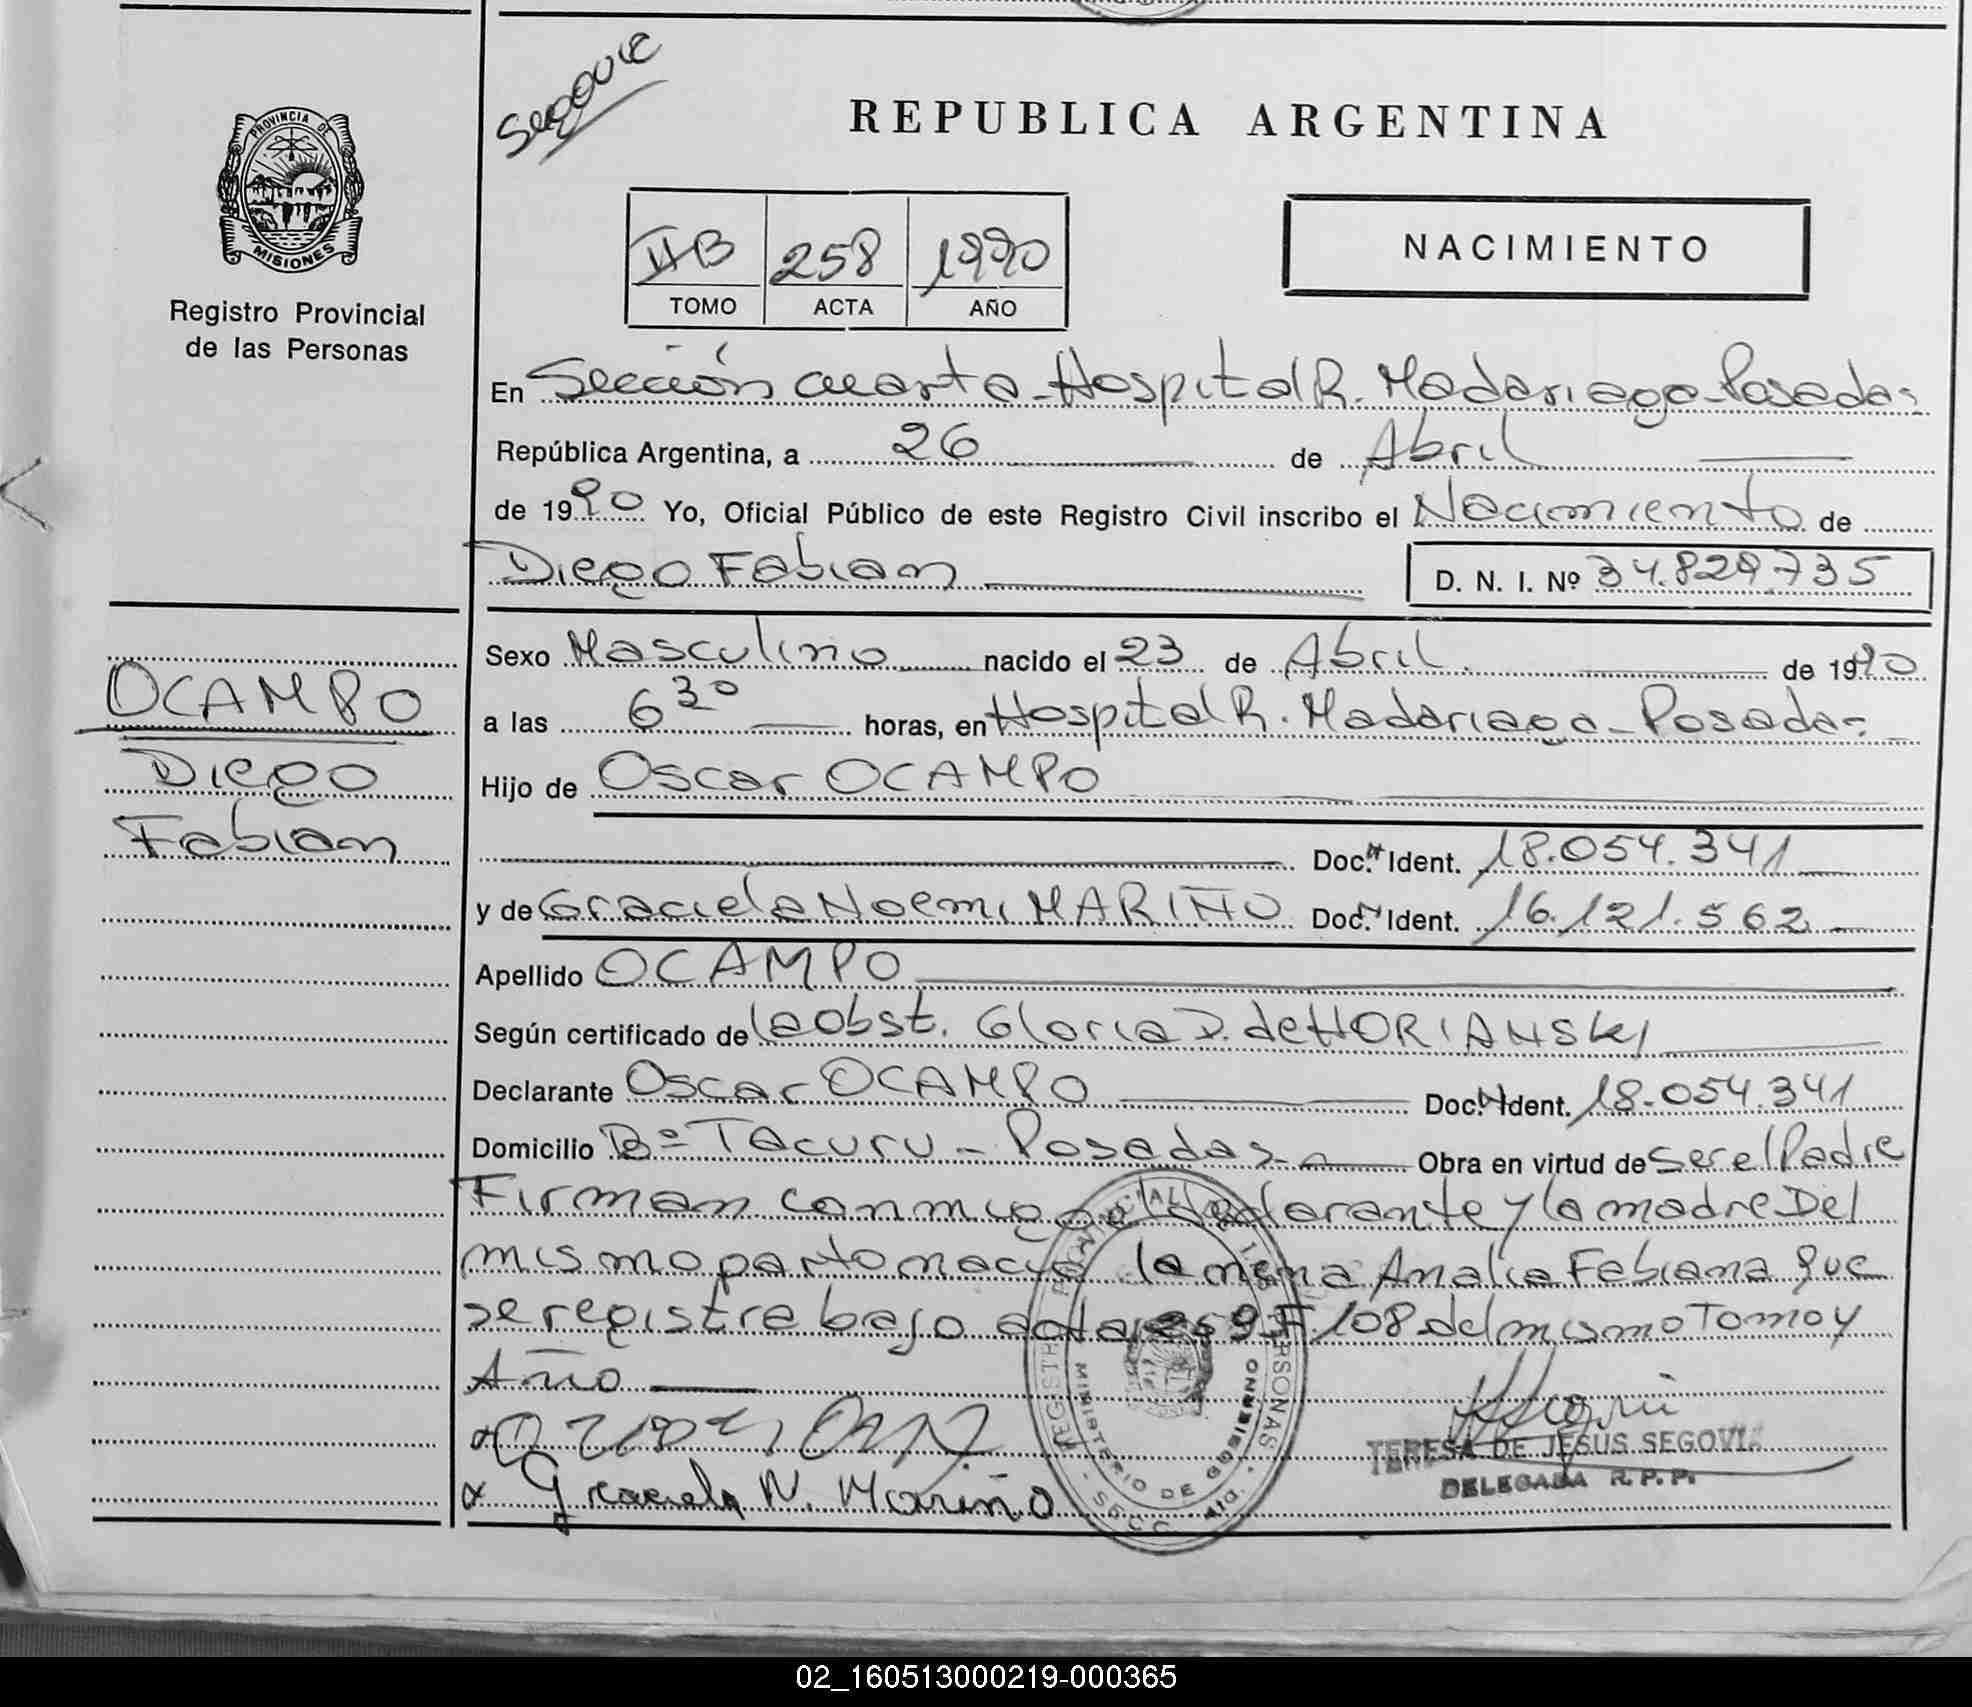 Segovia
REPUBLICA ARGENTINA
PROVINCIA DE
MISIONES
Registro Provincial
de las Personas
II B 258 1990
TOMO ACTA AÑO
NACIMIENTO
En Sección cuarta - Hospital R. Madariaga - Posadas
República Argentina, a 26 de Abril
de 1990 Yo, Oficial Público de este Registro Civil inscribo el Nacimiento de
Diego Fabian D. N. I. Nº 34.829735
OCAMPO
Diego
Fabian
Sexo Masculino nacido el 23 de Abril de 1990
a las 6 30 horas, en Hospital R. Madariaga - Posadas
Hijo de Oscar OCAMPO
Doc. Ident. 18.054.341
y de Graciela Noemi MARIÑO Doc. Ident. 16.121.562
Apellido OCAMPO
Según certificado de la Obst. Gloria D. de HORIANSKI
Declarante Oscar OCAMPO Doc. Ident. 18.054.341
Domicilio Bº Tacuru - Posadas Obra en virtud de ser el Padre
Firman conmigo el declarante y la madre Del
mismo parto nacio la nena Analia Fabiana que
se registra bajo acta 259 F. 108 del mismo Tomo y
Año
Graciela N. Mariño
TERESA DE JESUS SEGOVIA
DELEGADA R. P. P.
REGISTRO PROVINCIAL DE LAS PERSONAS
MINISTERIO DE GOBIERNO
02_160513000219-000365